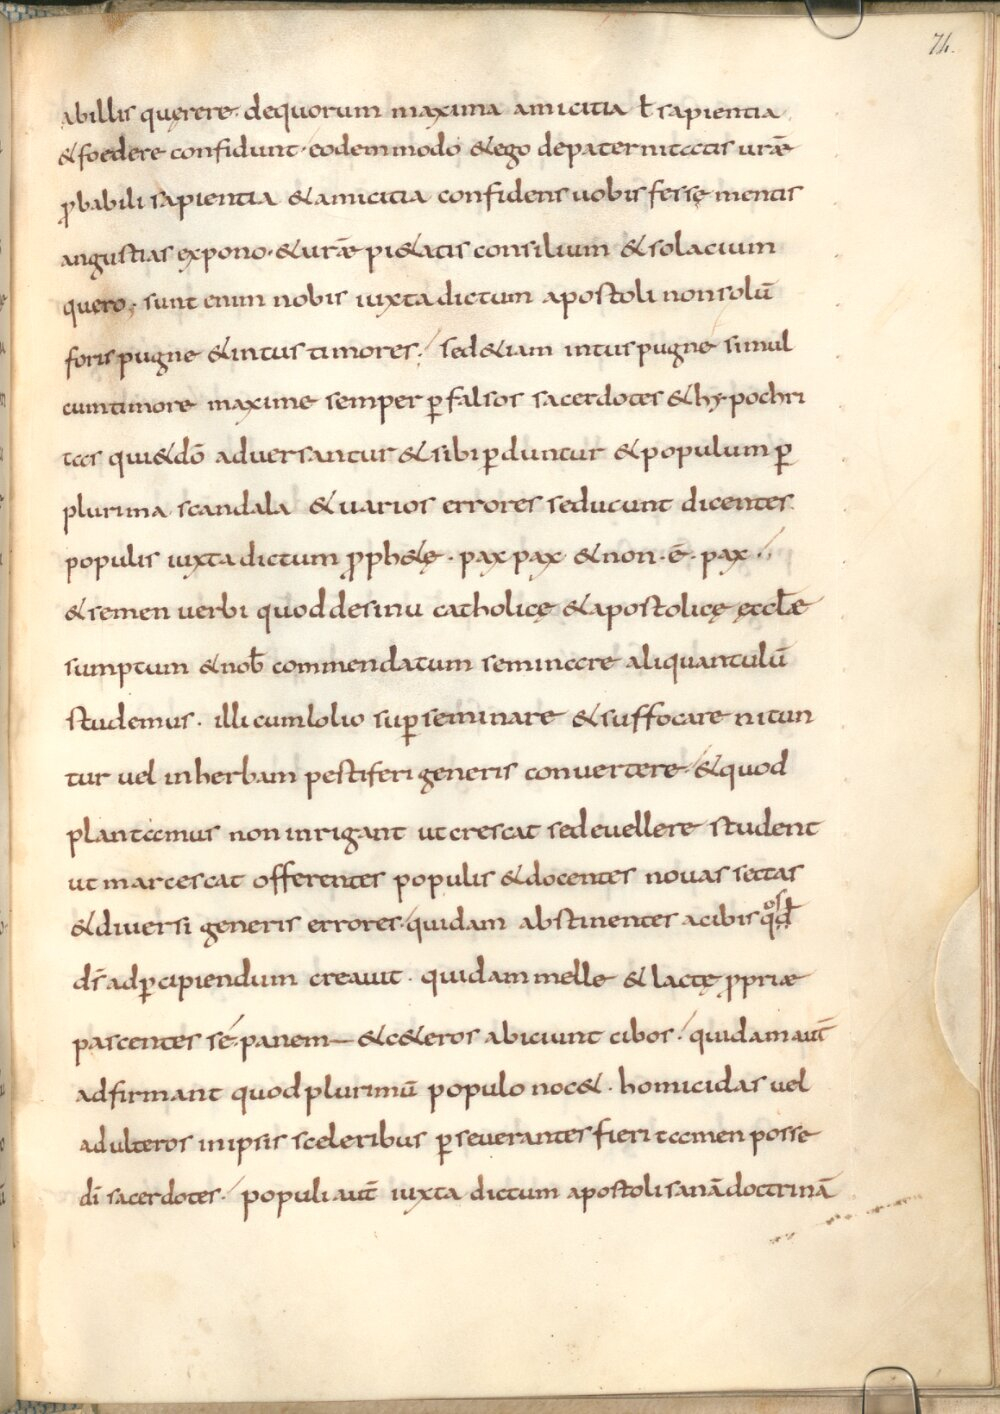 74.
abillis quęrere· dequorum maxima amicitia ł sapientia
&foedere confidunt· eodemmodo &ego depaternitatis uræ̅
ꝓbabili sapientia &amicitia confidens uobis fessę mentis
angustias expono· &uræ̅ pi&atis consilium &solacium
quero; sunt enim nobis iuxtadictum apostoli nonsolū
foris pugne &intus timores· / sed&iam intus pugne simul
cumtimore maxime semper ꝑfalsos sacerdotes &hypochri
tas qui&dō adversantur &sibi ꝑduntur &populum ꝑ
plurima scandala &uarios errores seducunt dicentes
populis iuxtadictum ꝓph&ę · pax pax &non · ē · pax ·/
&semen verbi quoddesinu catholicę &apostolicę ęccl̅æ
sumptum &nob̅ commendatum seminare aliquantulū
studemus · illi cumlolio suꝑseminare &suffocare nitun
tur uel inherbam pestiferi generis convertere·/ &quod
plantamus non inrigant ut crescat sedeuellere student
ut marcescat offerentes populis &docentes nouas sectas
&diuersi generis errores·/ quidam abstinentes acibis q̊sd̅
d̅s adꝑcipiendum creauit · quidam melle &lactę ꝓpriæ
pascentes sé·panem— &c&eros abiciunt cibos ·/ quidam aut̅
adfirmant quodplurimū populo noc& · homicidas uel
adulteros inipsis sceleribus ꝑseuerantes fieri tamen posse
d̅i sacerdotes·/ populi aut̅ iuxta dictum apostoli sanā doctrinā